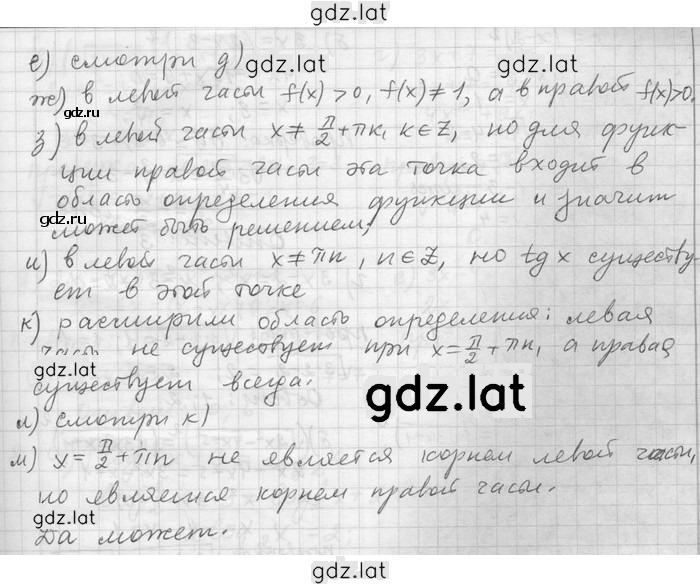 gdz.lat
е) смотри д)
gdz.lat gdz.lat
ж) в левой части f(x)>0, f(x)≠1, а в правой f(x)>0,
з) в левой части x≠ π/2+πk, k∈Z, но для функ-
ции правой части эта точка входит в
область определения функции и значит
gdz.lat
может быть решением;
и) в левой части x≠πn, n∈Z, но tg x существу-
ет в этой точке
к) расширили область определения: левая
часть не существует при x=π/2+πn, а правая
gdz.lat
существует всегда.
gdz.lat
л) смотри к)
м) x=π/2+πn не является корнем левой части,
но является корнем правой части.
gdz.lat
Да может.
gdz.lat